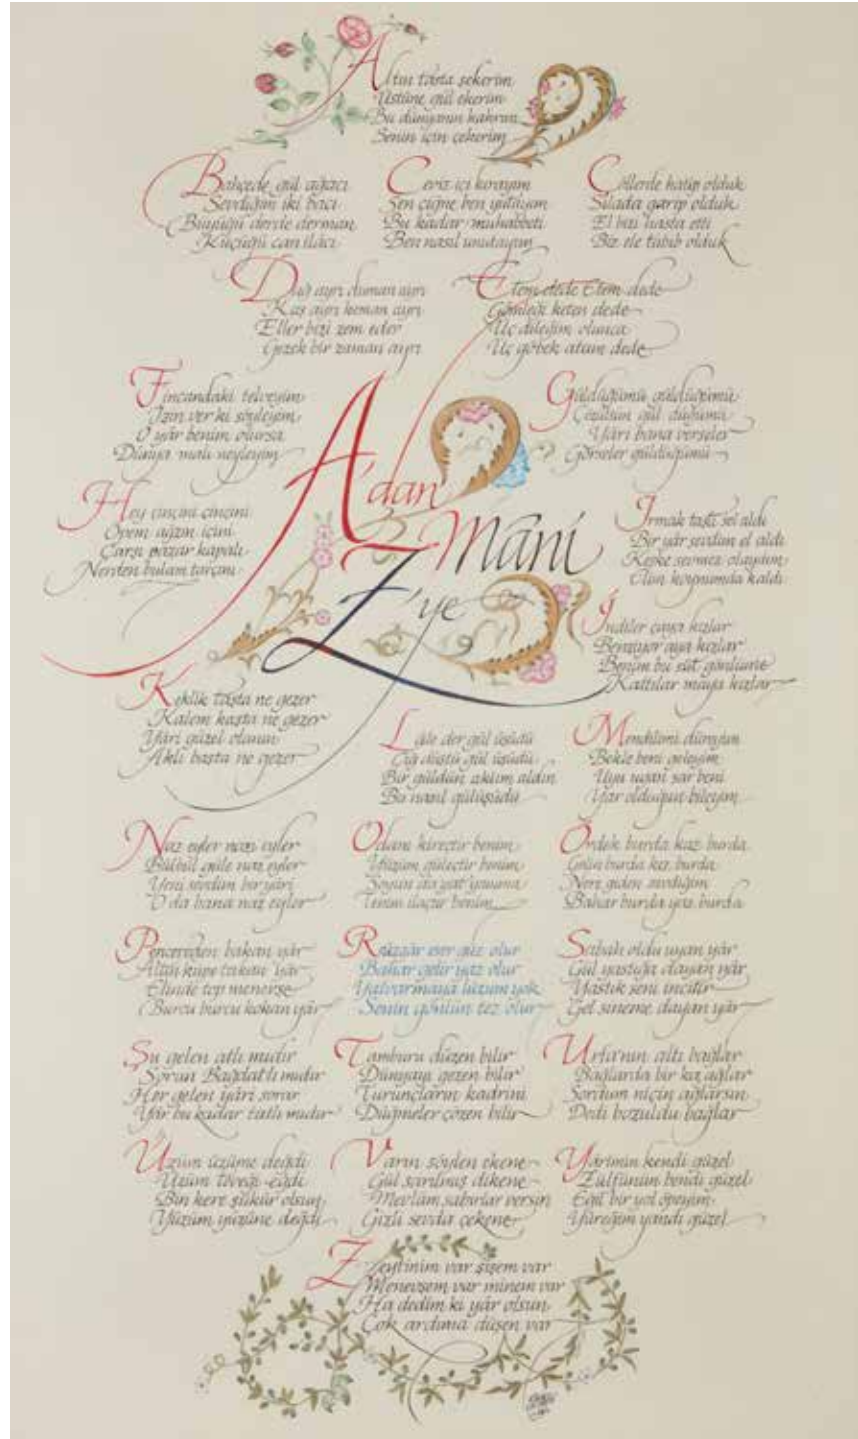 Altın tasta şekerim
Üstüne gül ekerim
Bu dünyanın kahrını
Senin için çekerim
Bahçede gül ağacı
Sevdiğim iki bacı
Büyüğü derde derman
Küçüğü can ilacı
Ceviz içi kırayım
Sen çiğne ben yutayım
Bu kadar muhabbeti
Ben nasıl unutayım
Çöllerde hatip olduk
Sılada garip olduk
El bizi hasta etti
Biz ele tabib olduk
Dağ ayrı duman ayrı
Kaş ayrı keman ayrı
Eller bizi zem eder
Gezek bir zaman ayrı
Etem dede Etem dede
Gömleği keten dede
Üç dileğim olunca
Üç göbek atam dede
Fincandaki telveyim
İzin ver ki söyleyim
O yâr benim olursa
Dünya malı neyleyim
Güldüğümü güldüğümü
Çözülsün gül düğümü
Yâri bana verseler
Görseler güldüğümü
A'dan
Z'ye
Mâni
Hey çinçini çinçini
Öpem ağzın içini
Çarşı pazar kapalı
Nerden bulam tarçını
Irmak taştı sel aldı
Bir yâr sevdim el aldı
Keşke sevmez olaydım
Elim koynumda kaldı
İndiler çaya kızlar
Benziyor aya kızlar
Benim bu süt gönlüme
Kattılar maya kızlar
Keklik taşta ne gezer
Kalem kaşta ne gezer
Yâri güzel olanın
Aklı başta ne gezer
Lâle der gül üşüdü
Çiğ düştü gül üşüdü
Bir güldün aklım aldın
Bu nasıl gülüşüdü
Mendilimi düreyim
Bekle beni geleyim
Uyu uyan sar beni
Yar olduğun bileyim
Naz eyler nazı eyler
Bülbül güle naz eyler
Yeni sevdim bir yâri
O da bana naz eyler
Odam kireçtir benim
Yüzüm güleçtir benim
Soyun da yat yanıma
Tenim ilaçtır benim
Ördek burda kaz burda
Gelin burda kız burda
Nere giden sevdiğim
Bahar burda yaz burda
Pencereden bakan yâr
Altın küpe takan yâr
Elinde top menevşe
Burcu burcu kokan yâr
Rüzgâr eser güz olur
Bahar gelir yaz olur
Yalvarmaya lüzum yok
Senin gönlün tez olur
Sabah oldu uyan yâr
Gül yastığa dayan yâr
Yastık seni incitir
Gel sineme dayan yâr
Şu gelen atlı mıdır
Sorun Bağdatlı mıdır
Her gelen yâri sorar
Yâr bu kadar tatlı mıdır
Tamburu düzen bilir
Dünyayı gezen bilir
Turunçların kadrini
Düğmeler çözen bilir
Urfa'nın altı bağlar
Bağlarda bir kız ağlar
Sordum niçin ağlarsın
Dedi bozuldu bağlar
Üzüm üzüme değdi
Üzüm teveği eğdi
Bin kere şükür olsun
Yüzüm yüzüne değdi
Varın söylen ekene
Gül sarılmış dikene
Mevlâm sabırlar versin
Gizli sevda çekene
Yârimin kendi güzel
Zülfünün bendi güzel
Eğil bir yol öpeyim
Yüreğim yandı güzel
Zeytinim var şişem var
Menevşem var minem var
Ha dedim ki yâr olsun
Çok ardıma düşen var